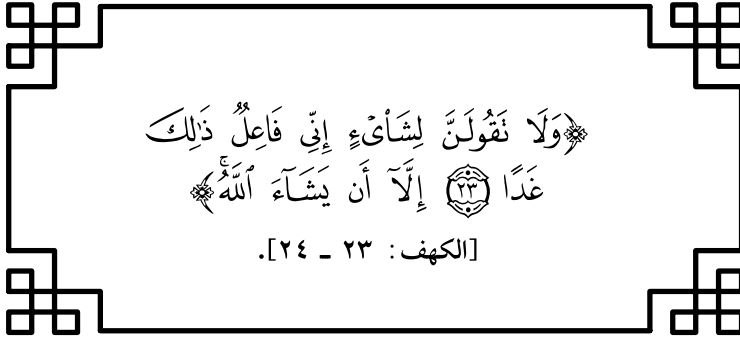 ﴿وَلَا تَقُولَنَّ لِشَاْىْءٍ إِنِّي فَاعِلٌ ذَٰلِكَ
غَدًا ٢٣ إِلَّآ أَن يَشَآءَ ٱللَّهُۚ﴾
[الكهف: ٢٣ ـ ٢٤].